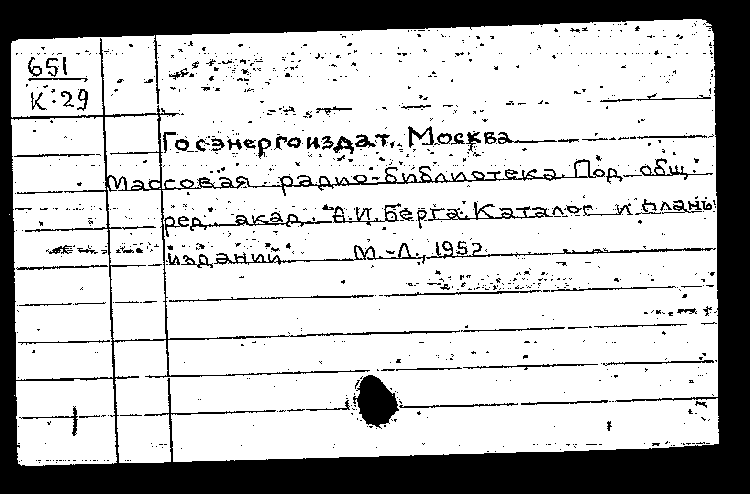 651
К-29
Госэнергоиздат, Москва
Массовая радио-библиотека. Под общ.
ред. акад. А.И. Берга. Каталог и планы
изданий. М.-Л., 1952